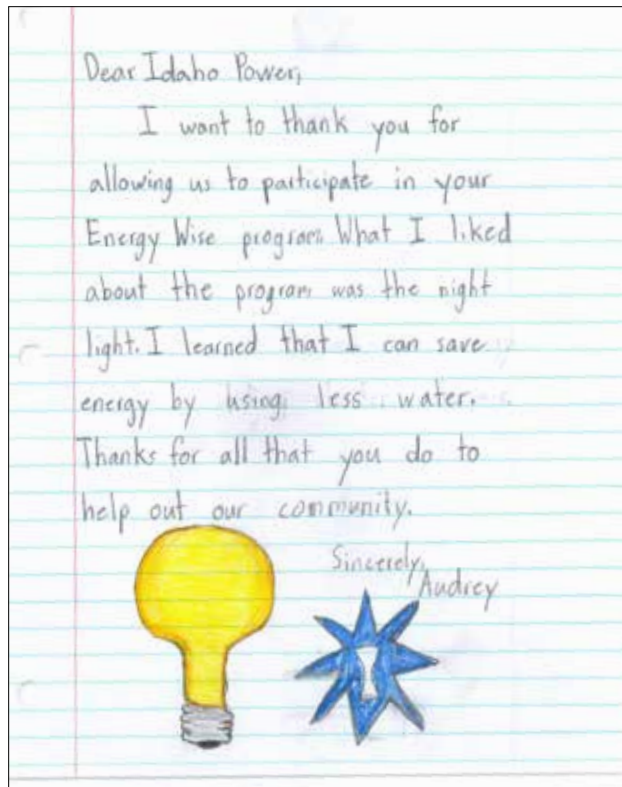 Dear Idaho Power,
I want to thank you for
allowing us to participate in your
Energy Wise program. What I liked
about the program was the night
light. I learned that I can save
energy by using less water.
Thanks for all that you do to
help out our community.
Sincerely,
Audrey